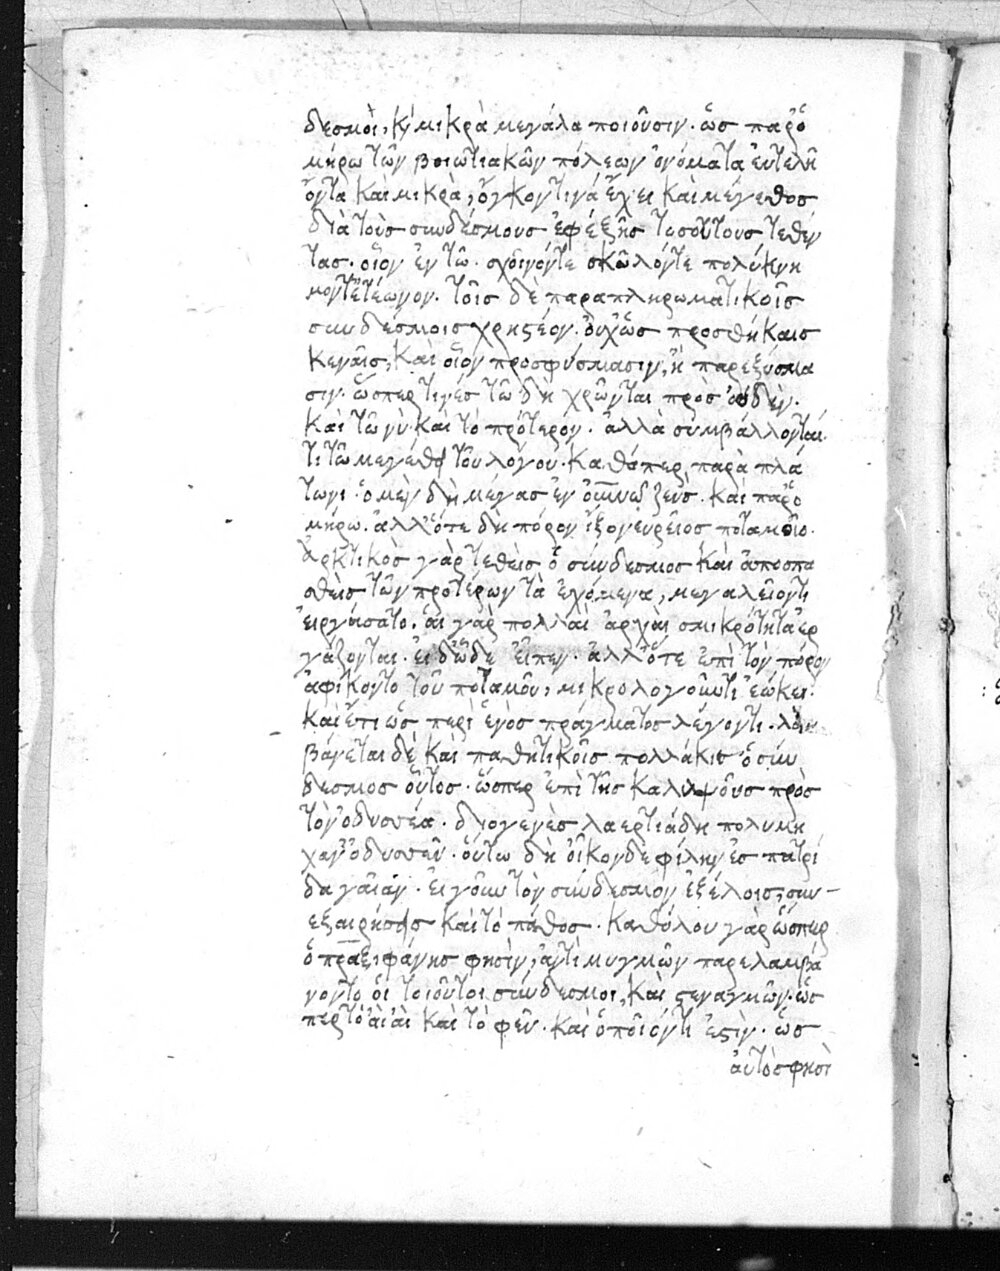 δεσμοὶ, κỳ μικρὰ μεγάλα ποιοῦσιν. ὡσ παρ ὁ
μήρω τῶν βοιωτιακῶν πόλεων ὀνόματα ἐυτελῆ
ὄντα καὶ μικρὰ, ὄγκον τινά ἔχει καὶ μέγεθοσ
διὰ τοὺσ συνδέσμουσ ἐφεξῆσ τοσούτουσ τεθέν
τασ. οἷον ἐν τῶ. σχοῖνόντε σκῶλόντε πολύκνη
μόντ ἐτέωνον. τοῖσ δὲ παραπληρωματικοῖσ
συνδέσμοισ χρηστέον. ὀυχ ὡσ προσθήκαισ
κεναῖσ, καὶ οἷον προσφύσμασιν, ἢ παρεξύσμα
σιν. ὥσπερ τινέσ τῶ δὴ χρῶνται πρὸσ οὐδὲν.
καὶ τῶ νὺ καὶ τὸ πρότερον. ἀλλὰ συμβάλλονται
τι τῶ μεγέθει τοῦ λόγου. καθάπερ παρὰ πλά
τωνι. ὁ μὲν δὴ μέγασ ἐν οὐνω ζεύσ. καὶ παρ ὁ
μήρω. ἀλλ ὅτε δὴ πόρον ἷξον ἐυρεῖοσ ποταμοῖο.
ἀρκτικὸσ γὰρ τεθεὶσ ὁ σύνδεσμοσ καὶ ἀποσπα
σθεὶσ τῶν προτέρων τὰ ἐχόμενα, μεγαλεῖόν τι
ἐιργάσατο. ἁι γὰρ πολλαὶ ἀρχαὶ σμικρότητα ἐρ
γάζονται. ἐι δ ὧδε ἔιπεν. ἀλλ ὅτε ἐπὶ τὸν πόρον
ἀφίκοντο τοῦ ποταμοῦ, μικρολογοῦντι ἐώκει.
καὶ ἔτι ὡσ περὶ ἑνὸσ πράγματοσ λέγοντι. λαμ
βάνεται δὲ καὶ παθητικοῖσ πολλάκισ ὁ σύν
δεσμοσ οὗτοσ. ὥσπερ ἐπὶ τῆσ καλυψοῦσ πρὸσ
τὸν ὀδυσσέα. διογενὲσ λαερτιάδη πολυμή
χαν ὀδυσσεῦ. οὕτω δὴ οἶκονδε φίλην ἐσ πατρί
δα γαῖαν. ἐι γοῦν τὸν σύνδεσμον ἐξέλοισ, συν-
εξαιρήσεισ καὶ τὸ πάθοσ. καθόλου γὰρ ὥσπερ
ὁ πραξιφάνησ φησὶν, ἀντὶ μυγμῶν παρελαμβά
νοντο ὁι τοιοῦτοι σύνδεσμοι, καὶ στεναγμῶν. ὥσ
περ τὸ ἀὶ ἀὶ καὶ τὸ φεῦ. καὶ ὁποῖόν τι ἐστὶν. ὡσ
ἀυτὸσ φησὶ